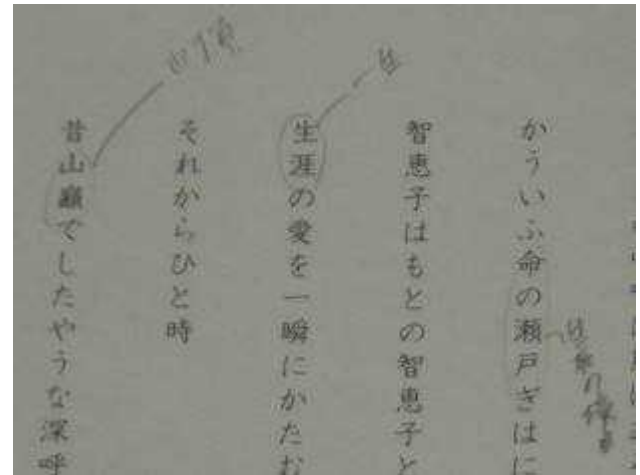 かういふ命の瀬戸ぎはに
智恵子はもとの智恵子と
一生
生涯の愛を一瞬にかたむ
それからひと時
山頂
昔山巓でしたやうな深呼